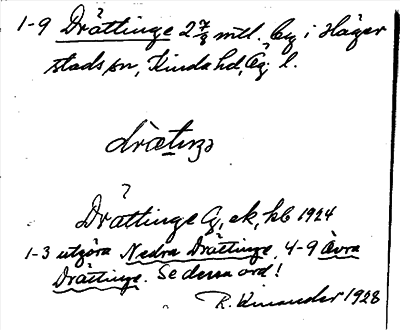 1-9 Drättinge 2 7/8 mtl. by i Häger
stads sn, Kinda hd, Ög. l.
drætıŋə
?
Drättinge G, ek, kb 1924
1-3 utgöra Nedra Drättinge, 4-9 Övra
Drättinge. Se dessa ord!
R. Kinander 1928